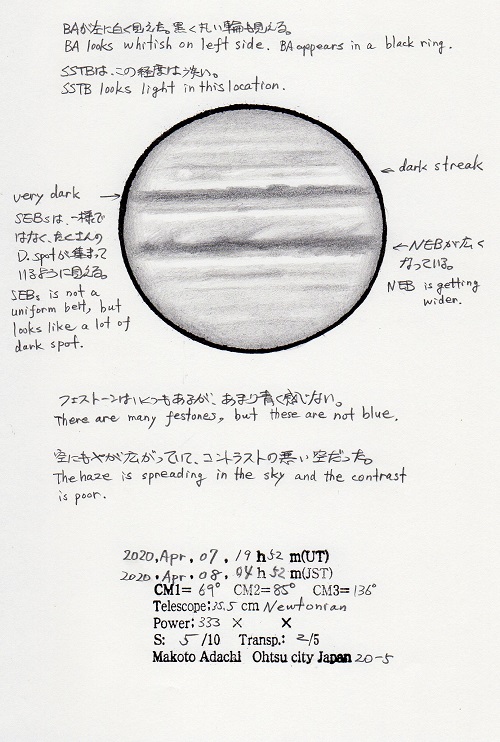 BAが左に白く見えた。黒く丸い輪も見える。
BA looks whitish on left side. BA appears in a black ring.
SSTBは、この経度は淡い。
SSTB looks light in this location.
dark streak
very dark
SEBsは、一様で
はなく、たくさんの
D. spotが集まって
いるように見える。
SEBs is not a
uniform belt, but
looks like a lot of
dark spot.
NEBが広く
なっている。
NEB is getting
wider.
フェストーンはいくつもあるが、あまり青く感じない。
There are many festones, but these are not blue.
空にもやが広がっていて、コントラストの悪い空だった。
The haze is spreading in the sky and the contrast
is poor.
2020, Apr, 07, 19 h 52 m(UT)
2020, Apr, 08, 04 h 52 m(JST)
CM1= 69° CM2= 85° CM3= 136°
Telescope: 35.5 cm Newtonian
Power: 333 × ×
S: 5 /10 Transp.: 2/5
Makoto Adachi Ohtsu city Japan 20-5